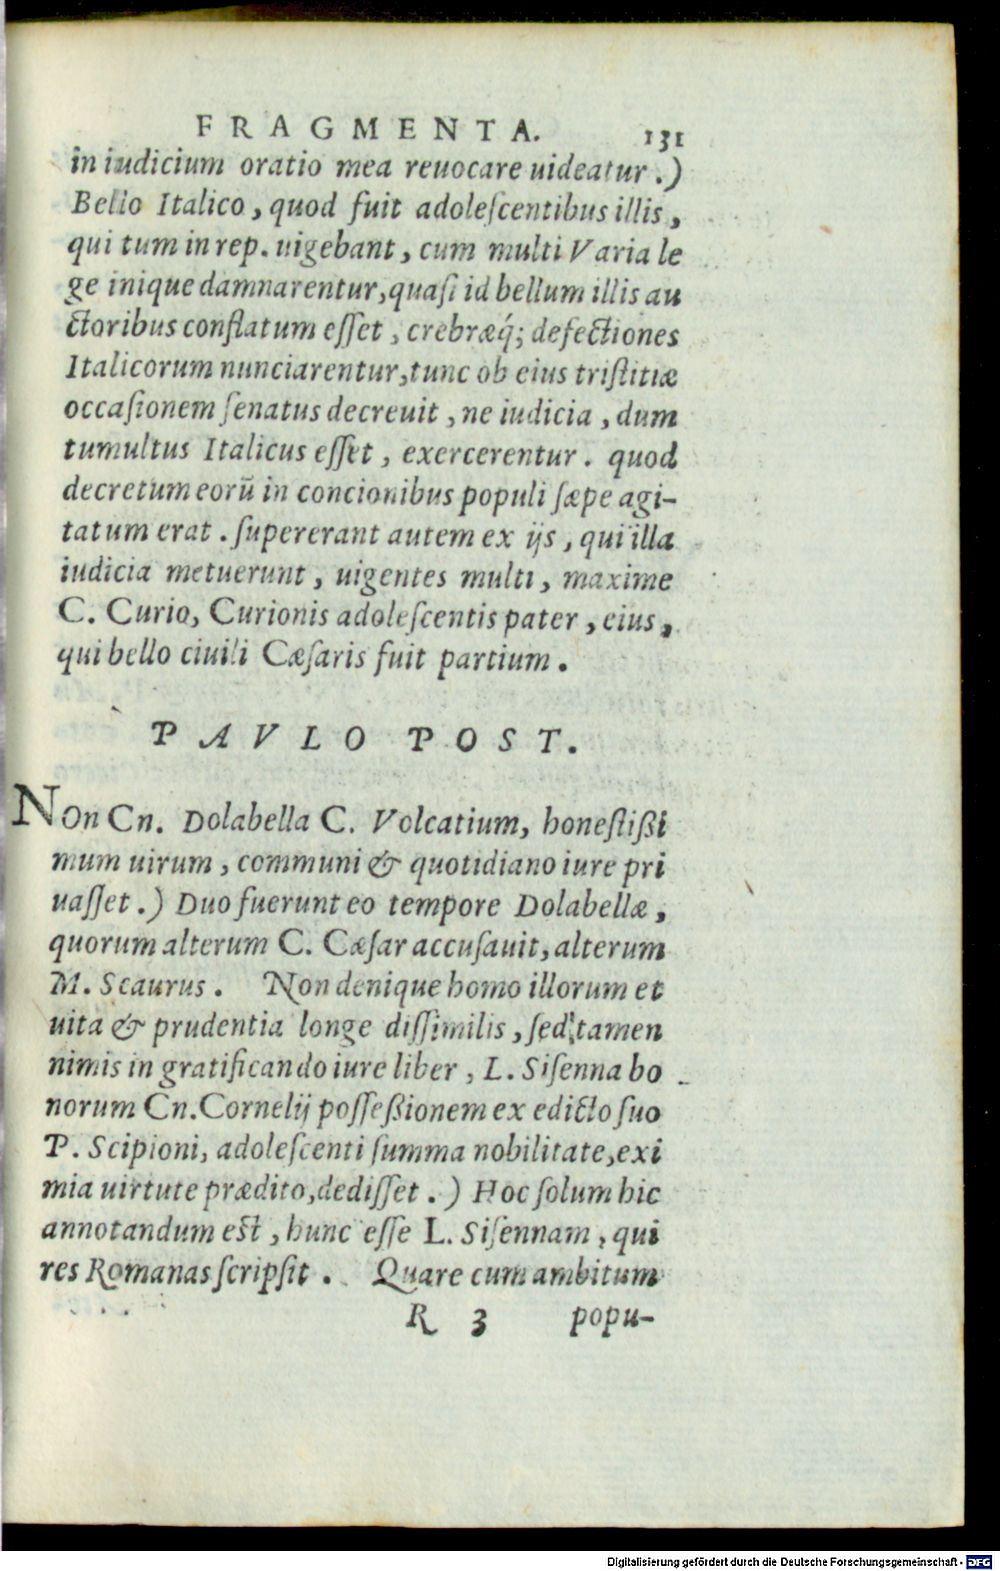 FRAGMENTA. 131
in iudicium oratio mea reuocare uideatur.)
Bello Italico, quod fuit adoleſcentibus illis,
qui tum in rep. uigebant, cum multi Varia le
ge inique damnarentur, quaſi id bellum illis au
ctoribus conflatum eſſet, crebræq́; defectiones
Italicorum nunciarentur, tunc ob eius triſtitiæ
occaſionem ſenatus decreuit, ne iudicia, dum
tumultus Italicus eſſet, exercerentur. quod
decretum eorū in concionibus populi ſæpe agi-
tatum erat. ſupererant autem ex ijs, qui illa
iudicia metuerunt, uigentes multi, maxime
C. Curio, Curionis adoleſcentis pater, eius,
qui bello ciuili Cæſaris fuit partium.
PAVLO POST.
NOn Cn. Dolabella C. Volcatium, honeſtißi
mum uirum, communi & quotidiano iure pri
uaſſet.) Duo fuerunt eo tempore Dolabellæ,
quorum alterum C. Cæſar accuſauit, alterum
M. Scaurus. Non denique homo illorum et
uita & prudentia longe diſſimilis, ſed tamen
nimis in gratificando iure liber, L. Siſenna bo
norum Cn. Cornelij poſſeßionem ex edicto ſuo
P. Scipioni, adoleſcenti ſumma nobilitate, exi
mia uirtute prædito, dediſſet.) Hoc ſolum hic
annotandum eſt, hunc eſſe L. Siſennam, qui
res Romanas ſcripſit. Quare cum ambitum
R 3 popu-
Digitalisierung gefördert durch die Deutsche Forschungsgemeinschaft - DFG